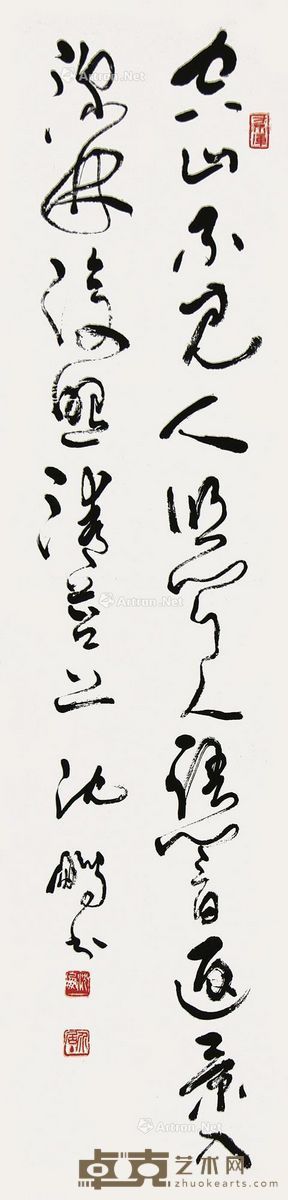 空山不見人但聞人語響返景入
深林復照清苔上 沈鵬书
Artron.Net
Artron.Net
Artron.Net
Artron.Net
卓克艺术网
zhuokearts.com